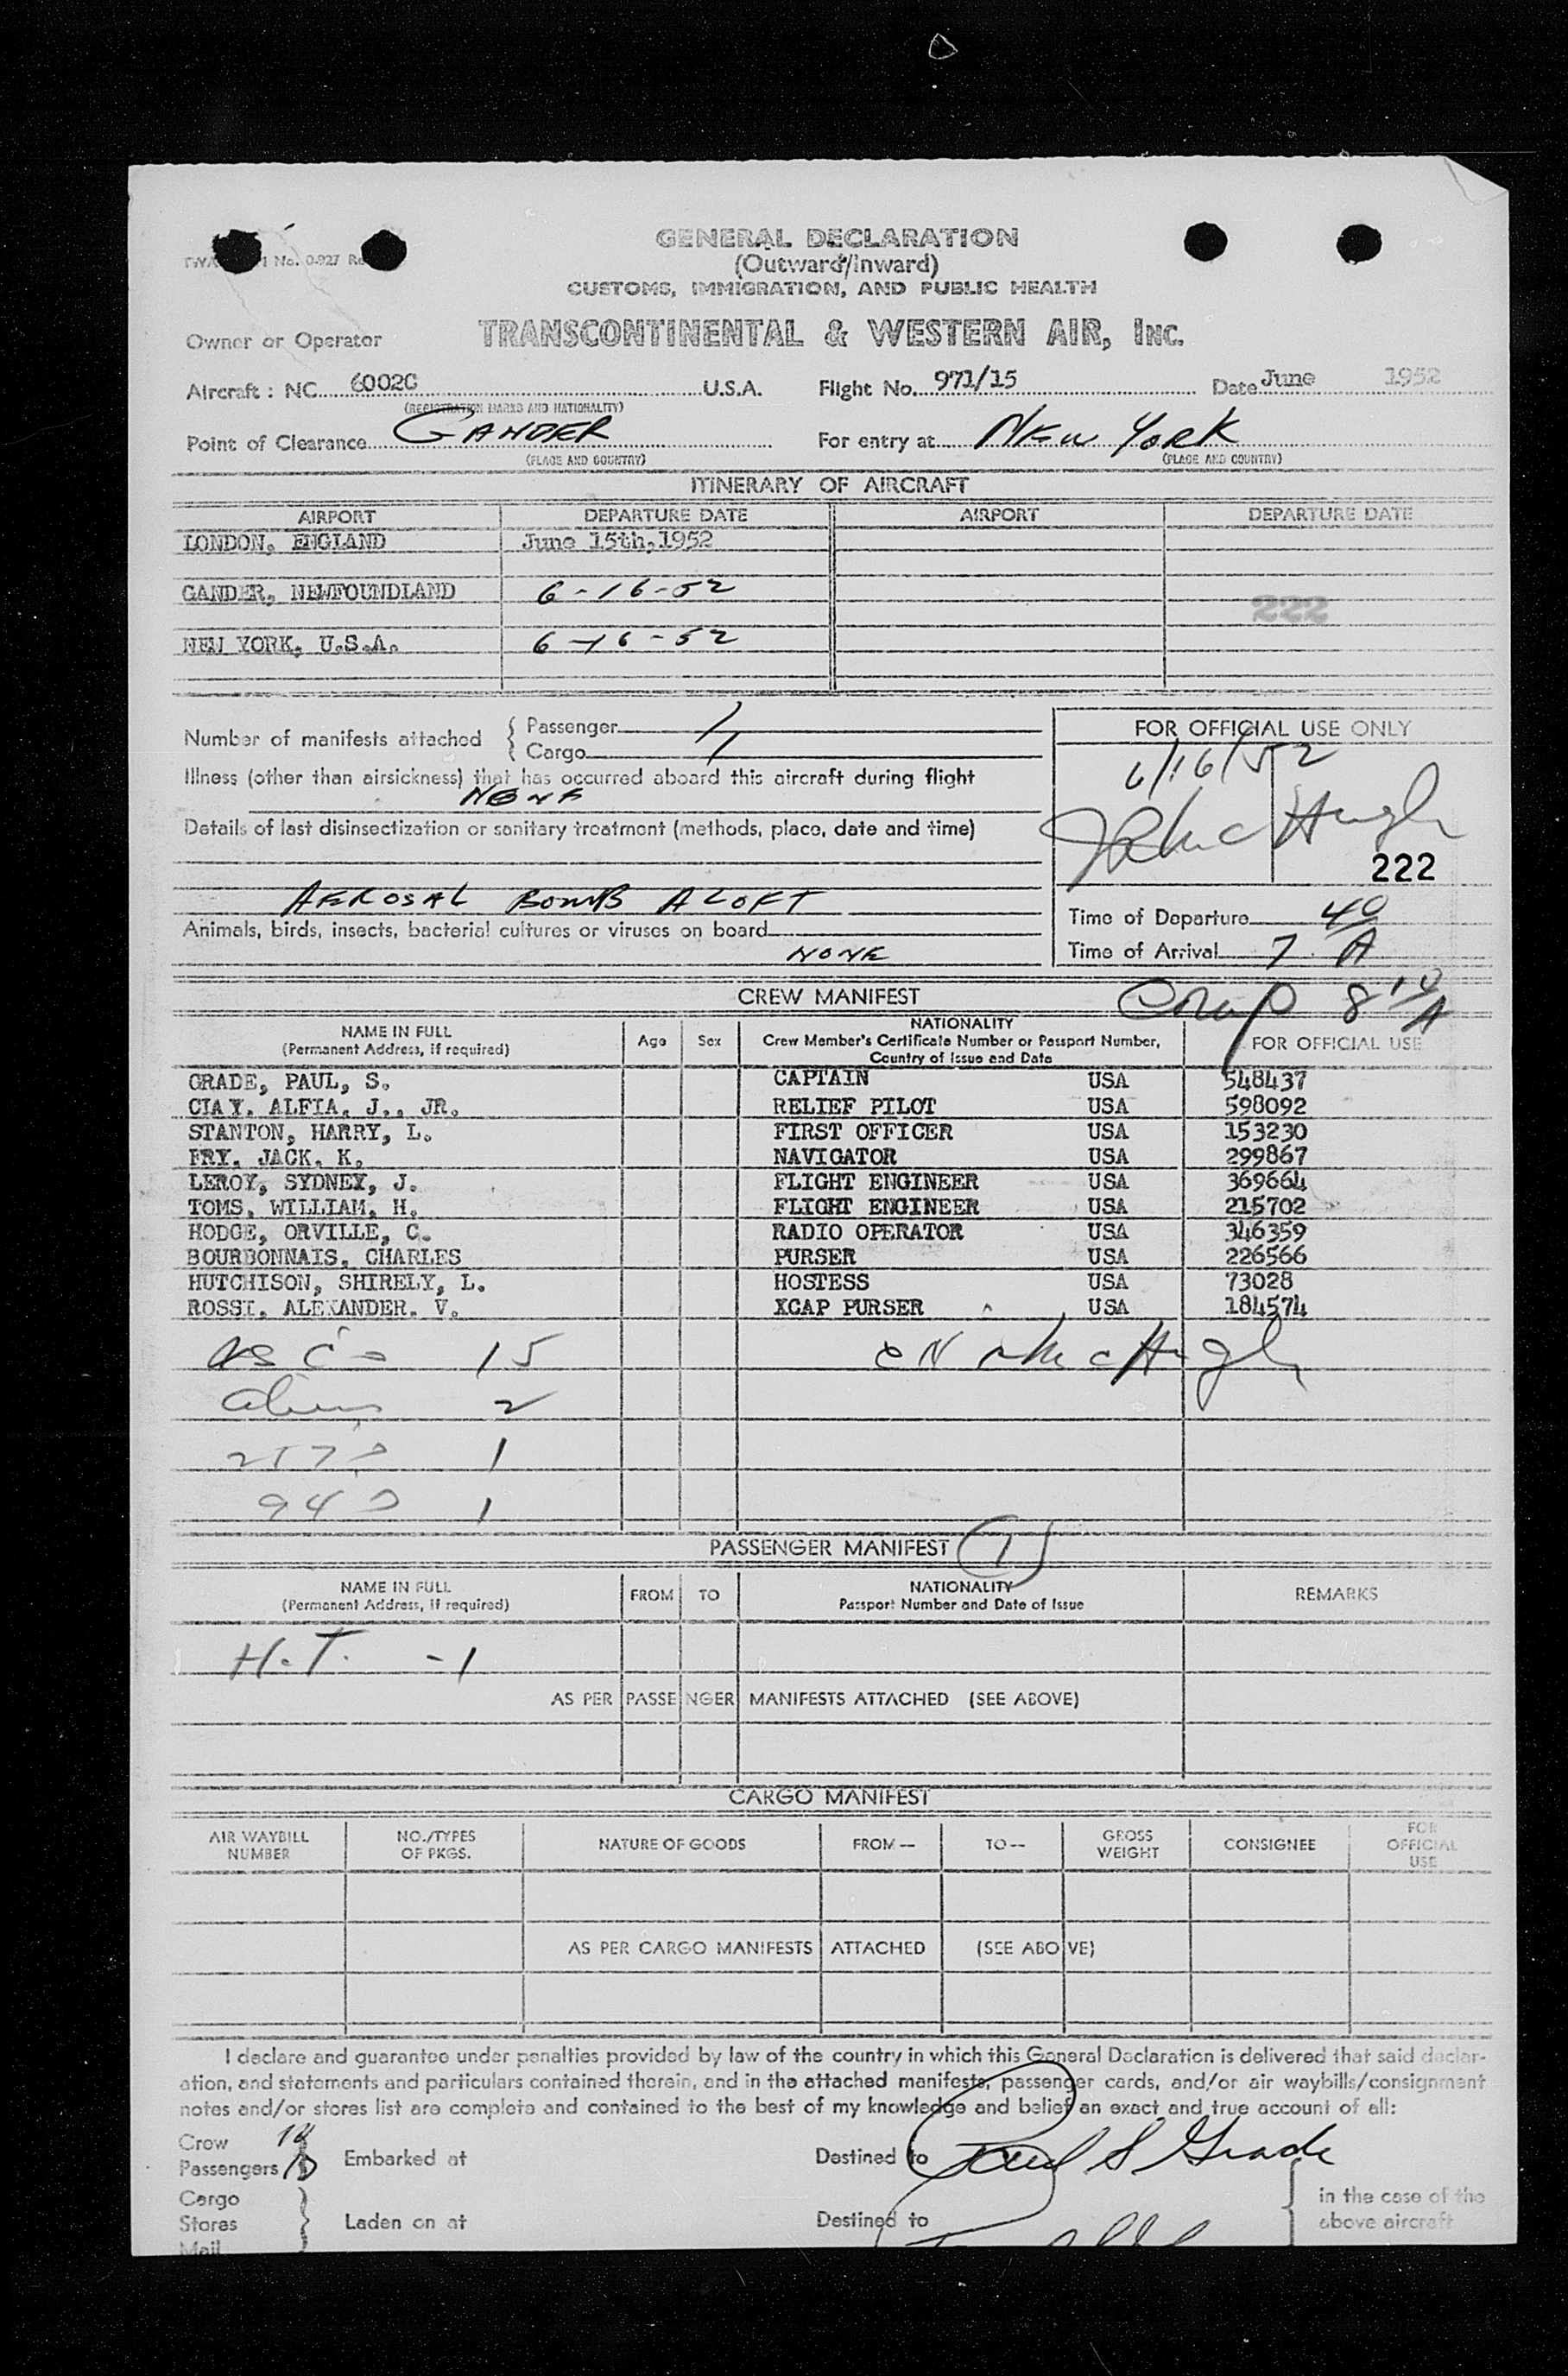 TWA No. 0-927
GENERAL DECLARATION
(Outward/Inward)
CUSTOMS, IMMIGRATION, AND PUBLIC HEALTH
Owner or Operator TRANSCONTINENTAL & WESTERN AIR, INC.
Aircraft : NC 6002C U.S.A. Flight No. 971/15 Date June 1952
(REGISTRATION MARKS AND NATIONALITY)
Point of Clearance GANDER For entry at NEW YORK
(PLACE AND COUNTRY) (PLACE AND COUNTRY)
ITINERARY OF AIRCRAFT
AIRPORT DEPARTURE DATE AIRPORT DEPARTURE DATE
LONDON, ENGLAND June 15th, 1952
GANDER, NEWFOUNDLAND 6-16-52
222
NEW YORK, U.S.A. 6-16-52
Number of manifests attached { Passenger 1
Cargo 1
FOR OFFICIAL USE ONLY
6/16/52
Illness (other than airsickness) that has occurred aboard this aircraft during flight
NONE
Details of last disinsectization or sanitary treatment (methods, place, date and time)
222
AEROSAL BOMB ALOFT
Animals, birds, insects, bacterial cultures or viruses on board
NONE
Time of Departure
Time of Arrival 7 40 A
CREW MANIFEST
Comp 8 10 A
NAME IN FULL
(Permanent Address, if required)
Age Sex
NATIONALITY
Crew Member's Certificate Number or Passport Number,
Country of Issue and Date
FOR OFFICIAL USE
GRADE, PAUL, S. CAPTAIN USA 548437
CLAY, ALFIA, J., JR. RELIEF PILOT USA 598092
STANTON, HARRY, L. FIRST OFFICER USA 153230
FRY, JACK, K. NAVIGATOR USA 299867
LEROY, SYDNEY, J. FLIGHT ENGINEER USA 369664
TOMS, WILLIAM, H. FLIGHT ENGINEER USA 215702
HODGE, ORVILLE, C. RADIO OPERATOR USA 346359
BOURBONNAIS, CHARLES PURSER USA 226566
HUTCHISON, SHIRELY, L. HOSTESS USA 73028
ROSSI, ALEXANDER, V. XCAP PURSER USA 184574
15
Aliens 2
1
1
PASSENGER MANIFEST
NAME IN FULL
(Permanent Address, if required)
FROM TO
NATIONALITY
Passport Number and Date of Issue
REMARKS
H.T. -1
AS PER PASSENGER MANIFESTS ATTACHED (SEE ABOVE)
CARGO MANIFEST
AIR WAYBILL NUMBER NO./TYPES OF PKGS. NATURE OF GOODS FROM -- TO -- GROSS WEIGHT CONSIGNEE FOR OFFICIAL USE
AS PER CARGO MANIFESTS ATTACHED (SEE ABOVE)
I declare and guarantee under penalties provided by law of the country in which this General Declaration is delivered that said declar-
ation, and statements and particulars contained therein, and in the attached manifests, passenger cards, and/or air waybills/consignment
notes and/or stores list are complete and contained to the best of my knowledge and belief an exact and true account of all:
Crew
Passengers Embarked at Destined to Paul S Grade
Cargo
Stores } Laden on at Destined to } in the case of the above aircraft
Mail